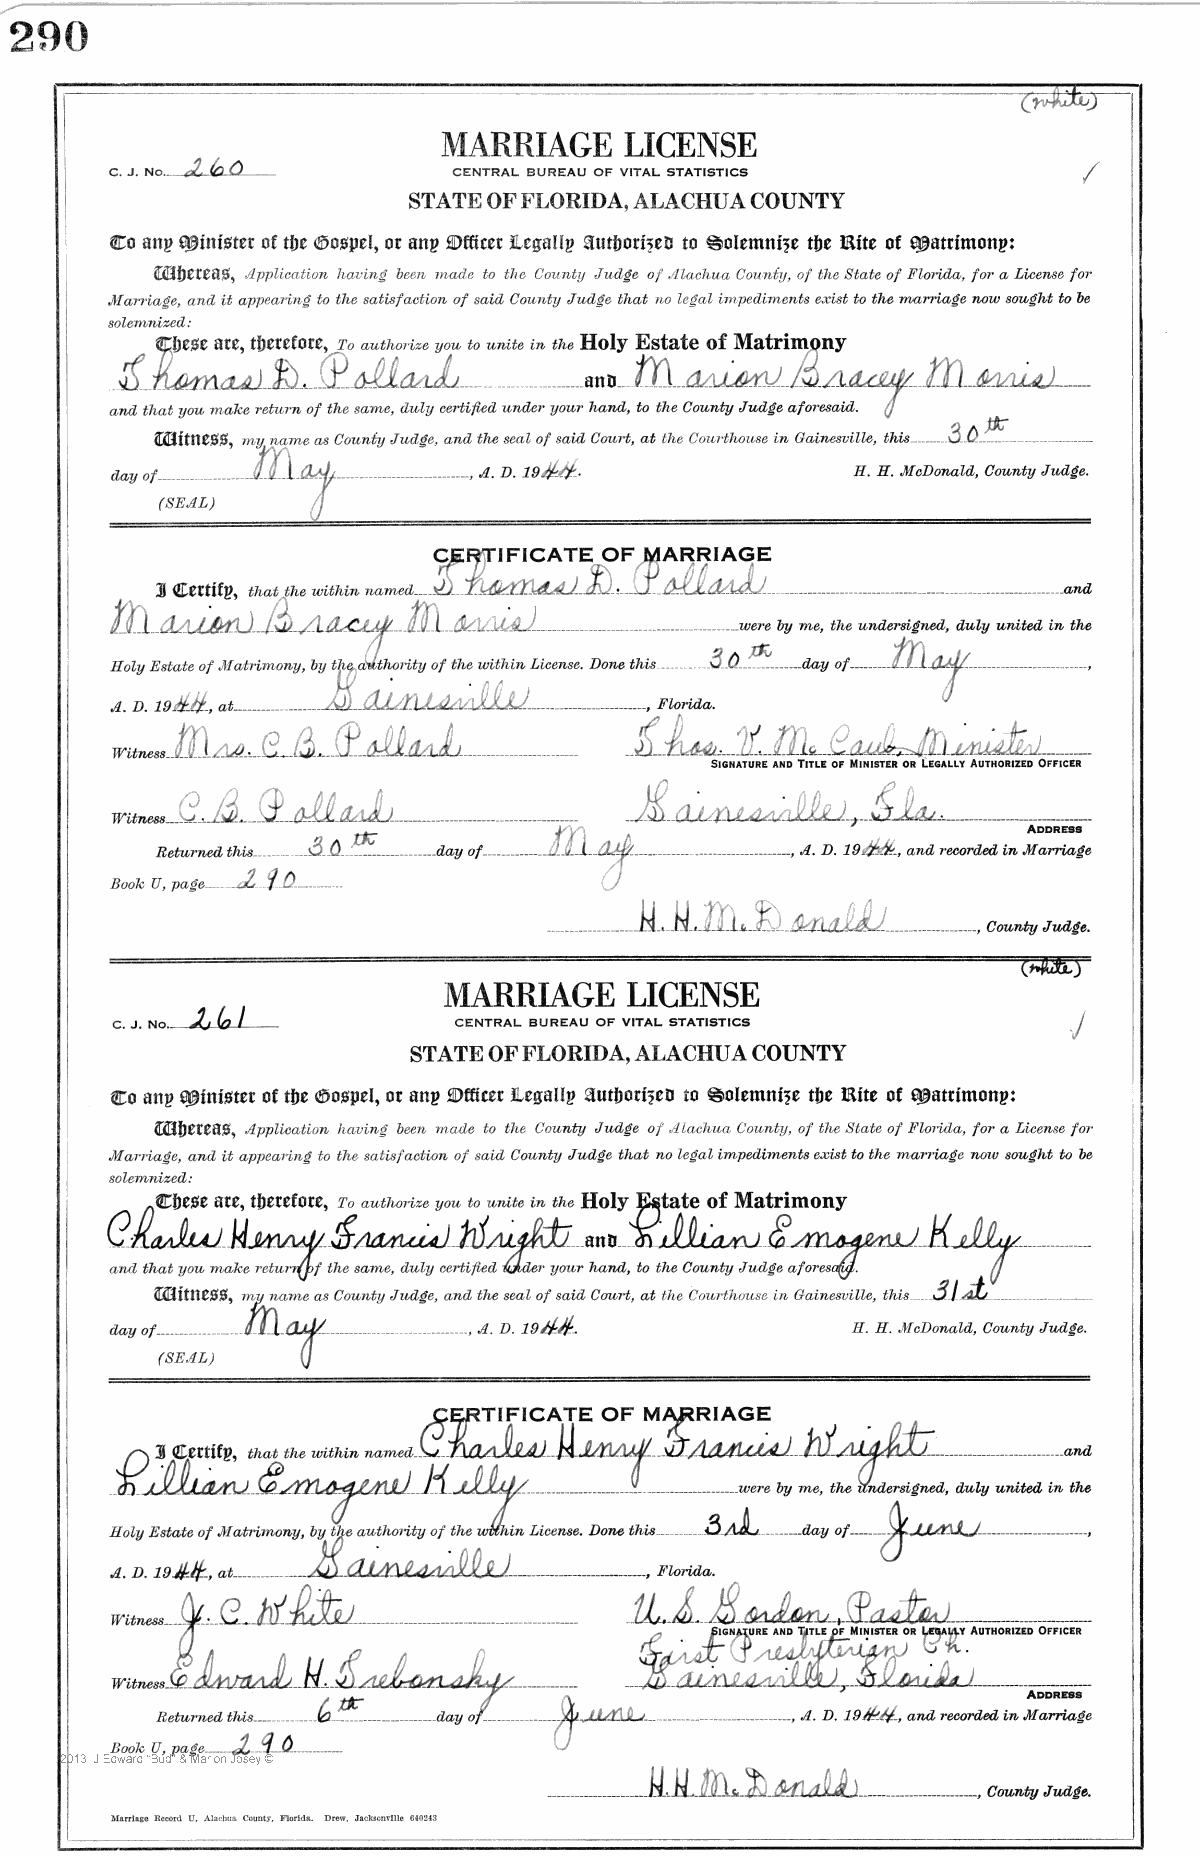 290
(white)
MARRIAGE LICENSE
C. J. No. 260
CENTRAL BUREAU OF VITAL STATISTICS
STATE OF FLORIDA, ALACHUA COUNTY
To any Minister of the Gospel, or any Officer Legally Authorized to Solemnize the Rite of Matrimony:
Whereas, Application having been made to the County Judge of Alachua County, of the State of Florida, for a License for
Marriage, and it appearing to the satisfaction of said County Judge that no legal impediments exist to the marriage now sought to be
solemnized:
These are, therefore, To authorize you to unite in the Holy Estate of Matrimony
Thomas D. Pollard and Marion Bracey Morris
and that you make return of the same, duly certified under your hand, to the County Judge aforesaid.
Witness, my name as County Judge, and the seal of said Court, at the Courthouse in Gainesville, this 30th
day of May, A. D. 1944. H. H. McDonald, County Judge.
(SEAL)
CERTIFICATE OF MARRIAGE
I Certify, that the within named Thomas D. Pollard and
Marion Bracey Morris were by me, the undersigned, duly united in the
Holy Estate of Matrimony, by the authority of the within License. Done this 30th day of May,
A. D. 1944, at Gainesville, Florida.
Witness Mrs. C. B. Pollard Thos. V. McCaul, Minister
SIGNATURE AND TITLE OF MINISTER OR LEGALLY AUTHORIZED OFFICER
Witness C. B. Pollard Gainesville, Fla.
ADDRESS
Returned this 30th day of May, A. D. 1944, and recorded in Marriage
Book U, page 290
H. H. McDonald, County Judge.
(white)
MARRIAGE LICENSE
C. J. No. 261
CENTRAL BUREAU OF VITAL STATISTICS
STATE OF FLORIDA, ALACHUA COUNTY
To any Minister of the Gospel, or any Officer Legally Authorized to Solemnize the Rite of Matrimony:
Whereas, Application having been made to the County Judge of Alachua County, of the State of Florida, for a License for
Marriage, and it appearing to the satisfaction of said County Judge that no legal impediments exist to the marriage now sought to be
solemnized:
These are, therefore, To authorize you to unite in the Holy Estate of Matrimony
Charles Henry Francis Wright and Lillian Emogene Kelly
and that you make return of the same, duly certified under your hand, to the County Judge aforesaid.
Witness, my name as County Judge, and the seal of said Court, at the Courthouse in Gainesville, this 31st
day of May, A. D. 1944. H. H. McDonald, County Judge.
(SEAL)
CERTIFICATE OF MARRIAGE
I Certify, that the within named Charles Henry Francis Wright and
Lillian Emogene Kelly were by me, the undersigned, duly united in the
Holy Estate of Matrimony, by the authority of the within License. Done this 3rd day of June,
A. D. 1944, at Gainesville, Florida.
Witness J. C. White U. S. Gordon, Pastor
SIGNATURE AND TITLE OF MINISTER OR LEGALLY AUTHORIZED OFFICER
First Presbyterian Ch.
Witness Edward H. Trebonsky Gainesville, Florida
ADDRESS
Returned this 6th day of June, A. D. 1944, and recorded in Marriage
Book U, page 290
2013 J Edward "Bud" & Marion Josey ©
H. H. McDonald, County Judge.
Marriage Record U, Alachua County, Florida. Drew, Jacksonville 640243